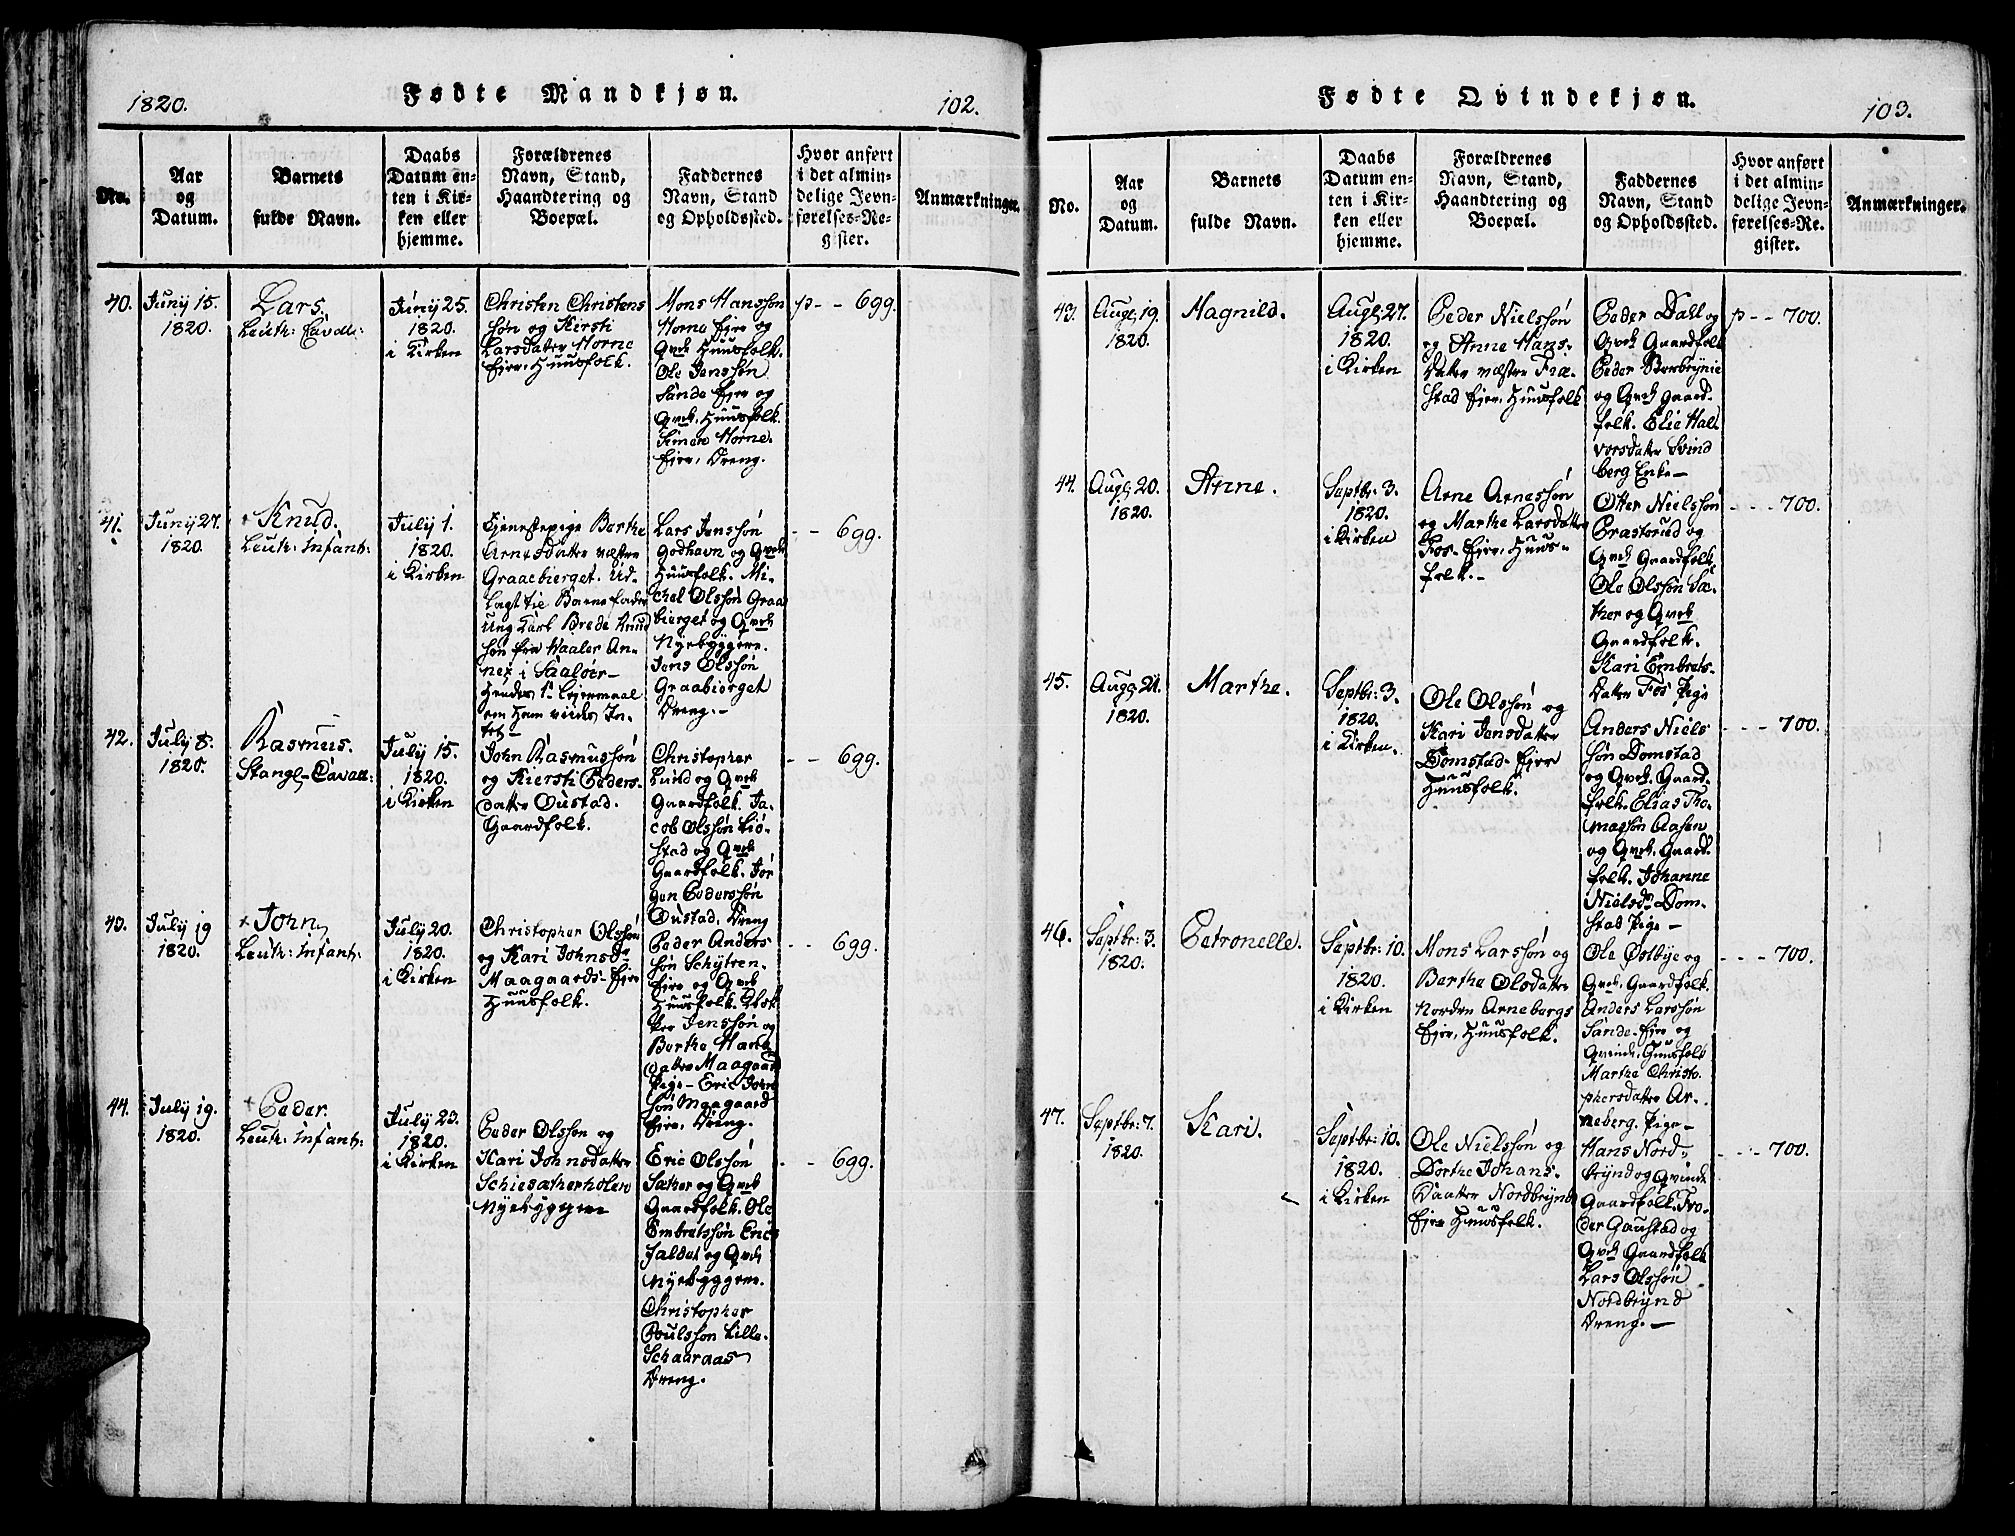 1820.
Fødte Mandkjøn.
102.
No.
Aar
og
Datum.
Barnets
fulde Navn.
Daabs
Datum en-
ten i Kir-
ken eller
hjemme.
Forældrenes
Navn, Stand,
Haandtering og
Boepæl.
Faddernes
Navn, Stand
og Opholdssted.
Hvor anført
i det almin-
delige Jevn-
førelses-Re-
gister.
Anmærkninger.
40.
Juny 15.
1820.
Lars.
Leuth: Cavall:
Juny 25.
1820.
i Kirken
Christen Christens
søn og Kirsti
Larsdatter Horne
Eier, Huusfolk.
Mons Hanssøn
Horne Ejre og
Qvck Huusfolk.
Ole Jenssøn
Sande Ejre og
Qvck. Huusfolk.
Simen Horne-
Ejre, Dreng.
p - - 699.
41.
Juny 27.
1820.
+ Knud.
Leuth: Infant:
July 1.
1820.
i Kirken
Tjenestepige Berthe
Arnesdatter væstre
Graaebierget. Ud-
lagt til Barnefader
Ung Karl Brede Knud
søn fra Vaaler An-
nex i Saaløer-
Hendes 1te Lejermaal
om Ham vides In-
tet-
Lars Jenssøn
Godhavn og Qvck
Huusfolk. Mi-
chel Olssøn Graa
bierget og Qvck
Nyebyggere.
Jens Olssøn
Graabierget
Dreng.-
- - 699.
42.
July 8.
1820.
Rasmus.
Stangl- Cavall:
July 15.
1820.
i Kirken
John Rasmussøn
og Kiersti Peders-
datter Oustad.
Gaardfolk.
Christopher
Lund og Qvck
Gaardfolk. Ja-
cob Olssøn Kiø-
stad og Qvck
Gaardfolk. Jør
gen Pederssøn
Oustad, Dreng
- - 699.
43.
July 19
1820.
+ John
Leuth: Infant:
July 20.
1820.
i Kirken
Christopher Olssøn
og Kari Johnsdr
Maagaards- Ejre
Huusfolk.
Peder Anders
søn Schytren-
Ejre og Qvck
Huusfolk.
Jenssøn og
Berthe Hans
datter Maagaard
Pige- Eric John
søn Maagaard
Ejre, Dreng.
- - 699.
44.
July 19.
1820.
+ Peder.
Leuth: Infant:
July 23.
1820.
i Kirken
Peder Olssøn og
Kari Johnsdatter
Schiesætherholen
Nyebyggere
Eric Olssøn
Sæther og Qvck
Gaardfolk. Ole
Embretssøn Erics
faldet og Qvck
Nyebyggere.
Christopher
Poulssøn Lille-
Schaaraas
Dreng.
- - 699.
Fødte Qvindekjøn.
103.
No.
Aar
og
Datum.
Barnets
fulde Navn.
Daabs
Datum en-
ten i Kir-
ken eller
hjemme.
Forældrenes
Navn, Stand,
Haandtering og
Boepæl.
Faddernes
Navn, Stand
og Opholdssted.
Hvor anført
i det almin-
delige Jevn-
førelses-Re-
gister.
Anmærkninger.
43.
Augl 19.
1820.
Magnild.
Augl 27.
1820.
i Kirken
Peder Nielssøn
og Anne Hans-
Datter væstre Fræ-
stad Ejer, Huusfolk
Peder Dahl og
Qvck Gaardfolk
Peder Berbrynie
og Qvck Gaard-
folk. Elie Hal-
vorsdatter Svind
berg Enke-
p - - 700.
44.
Augl 20.
1820.
Anne.
Septbr: 3.
1820.
i Kirken
Arne Arnessøn
og Marthe Larsdatter
Fos- Ejer, Huus-
folk.-
Otter Nielssøn
Præstrud og
Qvck Gaardfolk,
Ole Olssøn Sæ-
ther og Qvck
Gaardfolk.
Kari Embrets-
Datter Fos Pige
- - - 700.
45.
Augl 21.
1820.
Marthe.
Septbr: 3.
1820.
i Kirken.
Ole Olssøn og
Kari Jensdatter
Domstad- Ejer
Huusfolk.
Anders Niels
søn Domstad
og Qvck. Gaard-
folk. Elias Tho-
massøn Aasen
og Qvck. Gaard-
folk. Johanne
Nielsdr Dom-
stad Pige -
- - - 700.
46.
Septbr: 3.
1820.
Petronelle.
Septbr: 10.
1820.
i Kirken
Mons Larssøn og
Berthe Olsdatter
Nordre Arnebergs
Ejer, Huusfolk.
Ole Østbye og
Qvck. Gaardfolk.
Anders Larssøn
Sande- Ejer og
Qvinde, Huusfolk
Marthe Christo-
phersdatter Ar-
neberg. Pige-
- - - 700.
47.
Septbr: 7.
1820.
Kari.
Septbr: 10.
1820.
i Kirken
Ole Nielssøn og
Dorthe Johans-
Daatter Nordbrynd
Ejer Huusfolk.
Hans Nord-
brynd og Qvinde
Gaardfolk. Fro-
der Gaustad og
Qvck Gaardfolk
Lars Olssøn
Nordbrynd
Dreng. -
- - - 700.